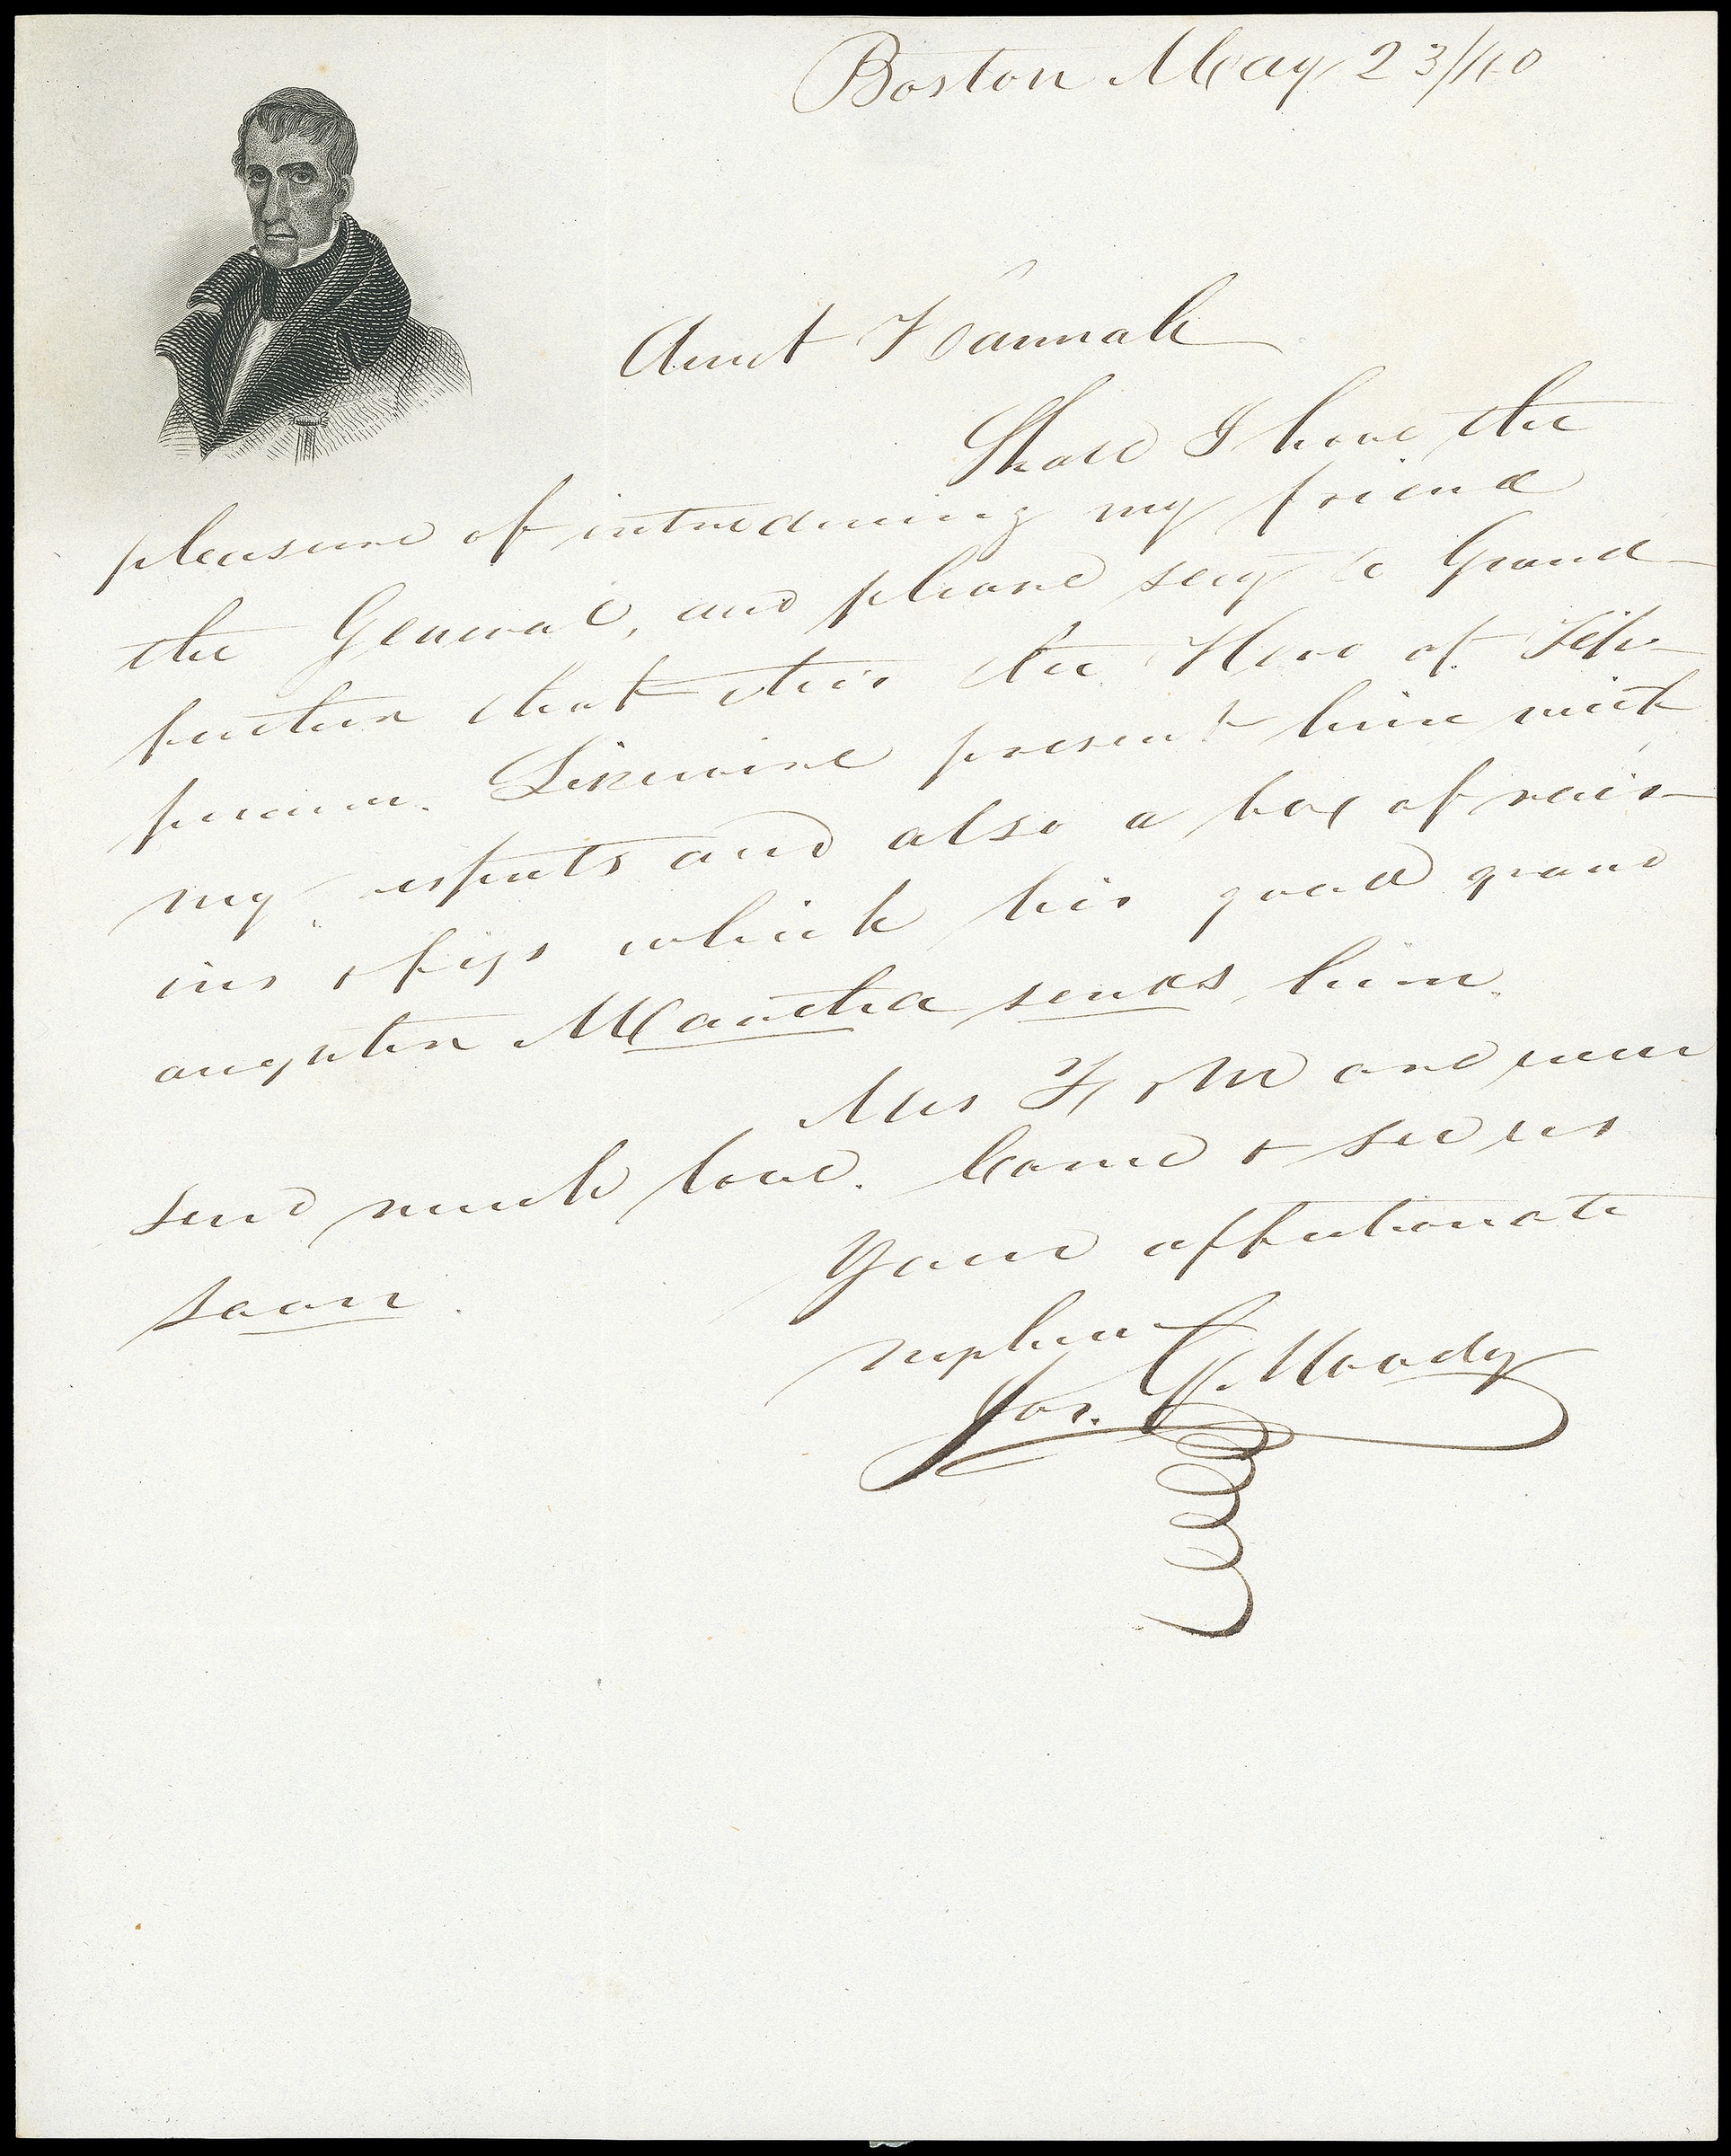 Boston May 23/40
Aunt Hannah
Shall I have the
pleasure of introducing my friend
the General, and please say to Grand
father that this the Hero of Tip-
pecanoe. Likewise present him with
my respects and also a box of rais-
ins & figs which his good grand
aughter Martha sends him.
Mrs & M are well
send much love. Come & see us
soon.
Your affectionate
nephew
Jos. G. Moody